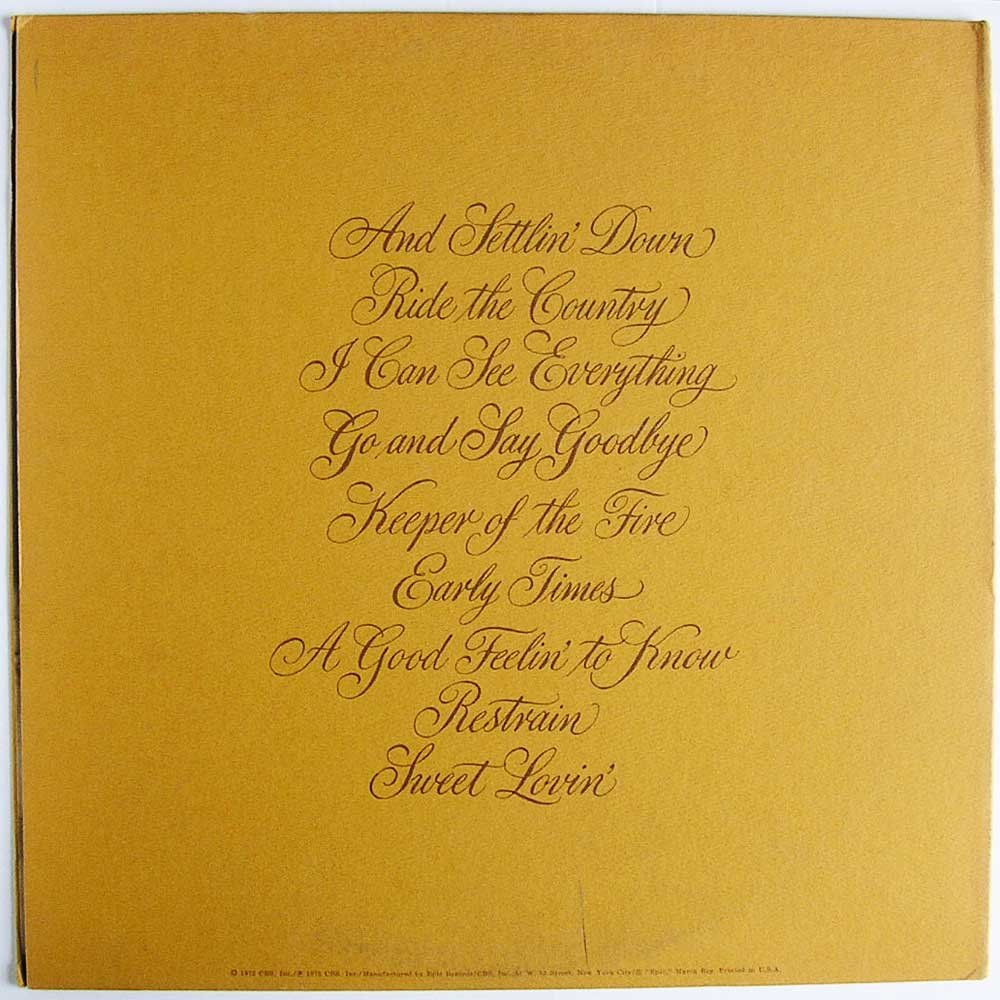 And Settlin' Down
Ride the Country
I Can See Everything
Go and Say Goodbye
Keeper of the Fire
Early Times
A Good Feelin' to Know
Restrain
Sweet Lovin'
© 1972 CBS, Inc./℗ 1972 CBS, Inc./Manufactured by Epic Records/CBS, Inc./51 W. 52 Street, New York City/® "Epic," Marca Reg. Printed in U.S.A.